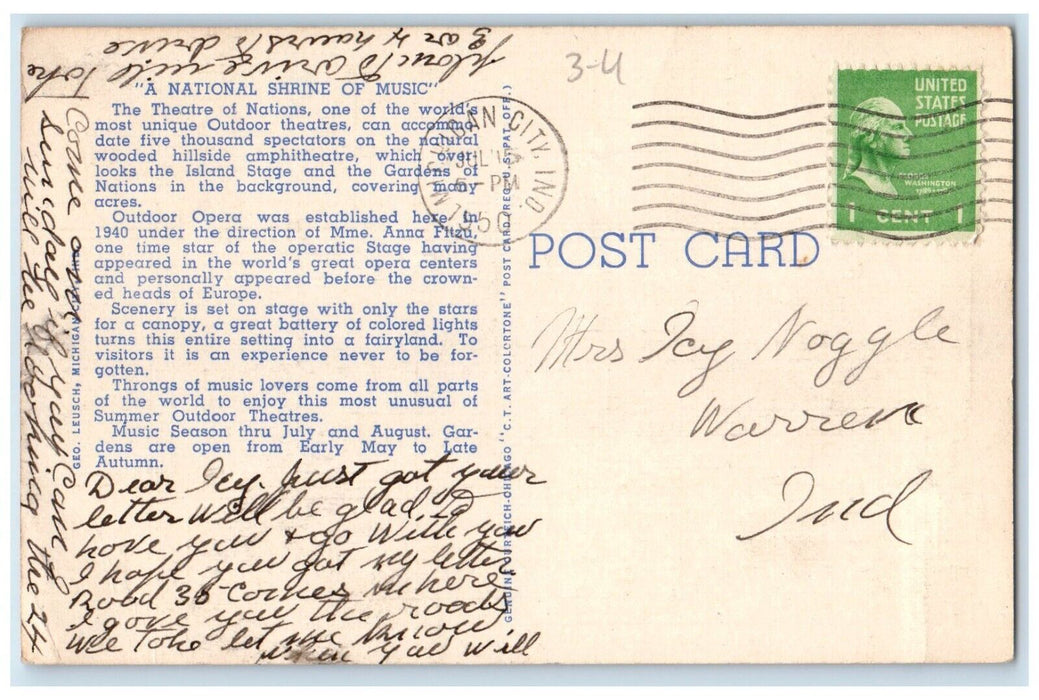 "A NATIONAL SHRINE OF MUSIC"
The Theatre of Nations, one of the world's
most unique Outdoor theatres, can accommo-
date five thousand spectators on the natural
wooded hillside amphitheatre, which over-
looks the Island Stage and the Gardens of
Nations in the background, covering many
acres.
Outdoor Opera was established here in
1940 under the direction of Mme. Anna Fitzu,
one time star of the operatic Stage having
appeared in the world's great opera centers
and personally appeared before the crown-
ed heads of Europe.
Scenery is set on stage with only the stars
for a canopy, a great battery of colored lights
turns this entire setting into a fairyland. To
visitors it is an experience never to be for-
gotten.
Throngs of music lovers come from all parts
of the world to enjoy this most unusual of
Summer Outdoor Theatres.
Music Season thru July and August. Gar-
dens are open from Early May to Late
Autumn.
Dear Icy. Just got your
letter will be glad to
have you & go with you
I hope you got my letter
Road 35 comes in here
I gave you the roads
we take let me know
when you will
Come over
Sunday if you can
will be the 24
plan to arrive will take
or 4 hours to drive
GEO. LEUSCH, MICHIGAN
GENUINE CURTEICH-CHICAGO "C.T. ART-COLORTONE" POST CARD (REG. U.S. PAT. OFF.)
MICHIGAN CITY, IND.
JUL
5 - PM
1950
3-4
UNITED
STATES
POSTAGE
WASHINGTON
1 CENT 1
POST CARD
Mrs Icy Noggle
Warren
Ind